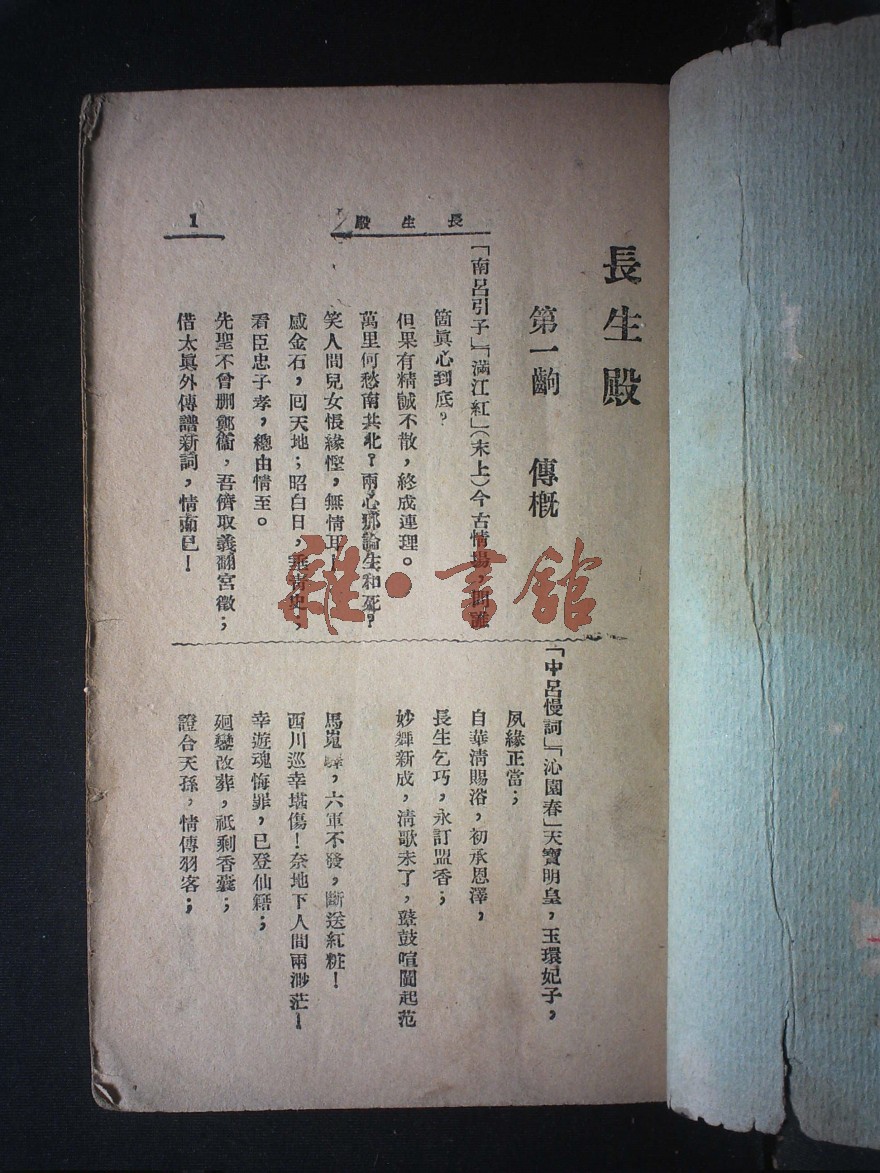 長生殿
第一齣　傳概
長生殿
1
「南呂引子」『滿江紅」（末上）今古情場，問誰
箇眞心到底？
但果有精誠不散，終成連理。
萬里何愁南共北？兩心那論生和死？
笑人間兒女悵緣慳，無情耳！
感金石，回天地；昭白日，垂青史；
看臣忠子孝，總由情至。
先聖不曾刪鄭衞，吾儕取義翻宮徵；
借太眞外傳譜新詞，情而已！
「中呂慢詞」『沁園春」天寶明皇，玉環妃子，
夙緣正當；
自華淸賜浴，初承恩澤，
長生乞巧，永訂盟香；
妙舞新成，淸歌未了，鼙鼓喧闐起范
馬嵬驛，六軍不發，斷送紅粧！
西川巡幸堪傷！奈地下人間兩渺茫！
幸遊魂悔罪，已登仙籍；
廻鑾改葬，祇剩香囊；
證合天孫，情傳羽客；
雜·書館